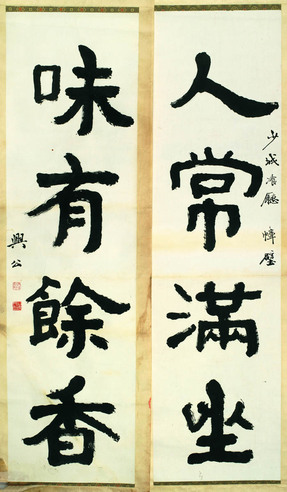 人常滿坐
少城冷廳幛壁
味有餘香
興公